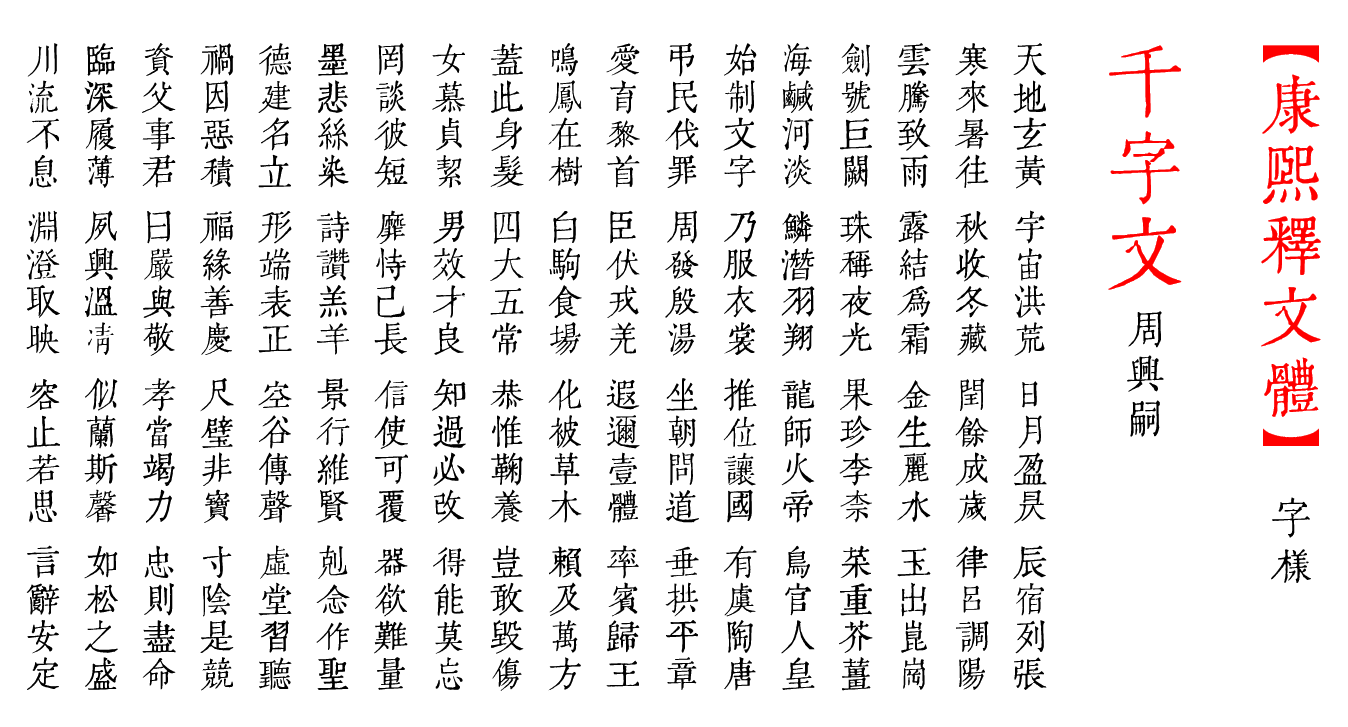 【康熙釋文體】 字樣
千字文 周興嗣
天地玄黃 宇宙洪荒 日月盈昃 辰宿列張
寒來暑往 秋收冬藏 閏餘成歲 律呂調陽
雲騰致雨 露結爲霜 金生麗水 玉出崑崗
劍號巨闕 珠稱夜光 果珍李柰 菜重芥薑
海鹹河淡 鱗潛羽翔 龍師火帝 鳥官人皇
始制文字 乃服衣裳 推位讓國 有虞陶唐
弔民伐罪 周發殷湯 坐朝問道 垂拱平章
愛育黎首 臣伏戎羌 遐邇壹體 率賓歸王
鳴鳳在樹 白駒食場 化被草木 賴及萬方
蓋此身髮 四大五常 恭惟鞠養 豈敢毀傷
女慕貞絜 男效才良 知過必改 得能莫忘
罔談彼短 靡恃己長 信使可覆 器欲難量
墨悲絲染 詩讚羔羊 景行維賢 剋念作聖
德建名立 形端表正 空谷傳聲 虛堂習聽
禍因惡積 福緣善慶 尺璧非寶 寸陰是競
資父事君 曰嚴與敬 孝當竭力 忠則盡命
臨深履薄 夙興溫凊 似蘭斯馨 如松之盛
川流不息 淵澄取映 容止若思 言辭安定